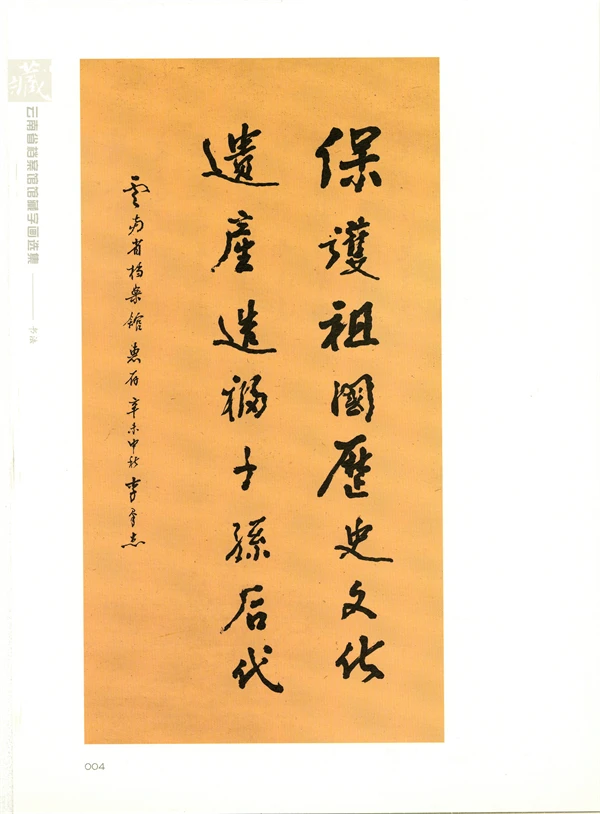 藏
云南省档案馆馆藏字画选集
书法
保護祖國歷史文化
遺產造福子孫后代
雲南省档案館 惠存 辛未中秋 李
004